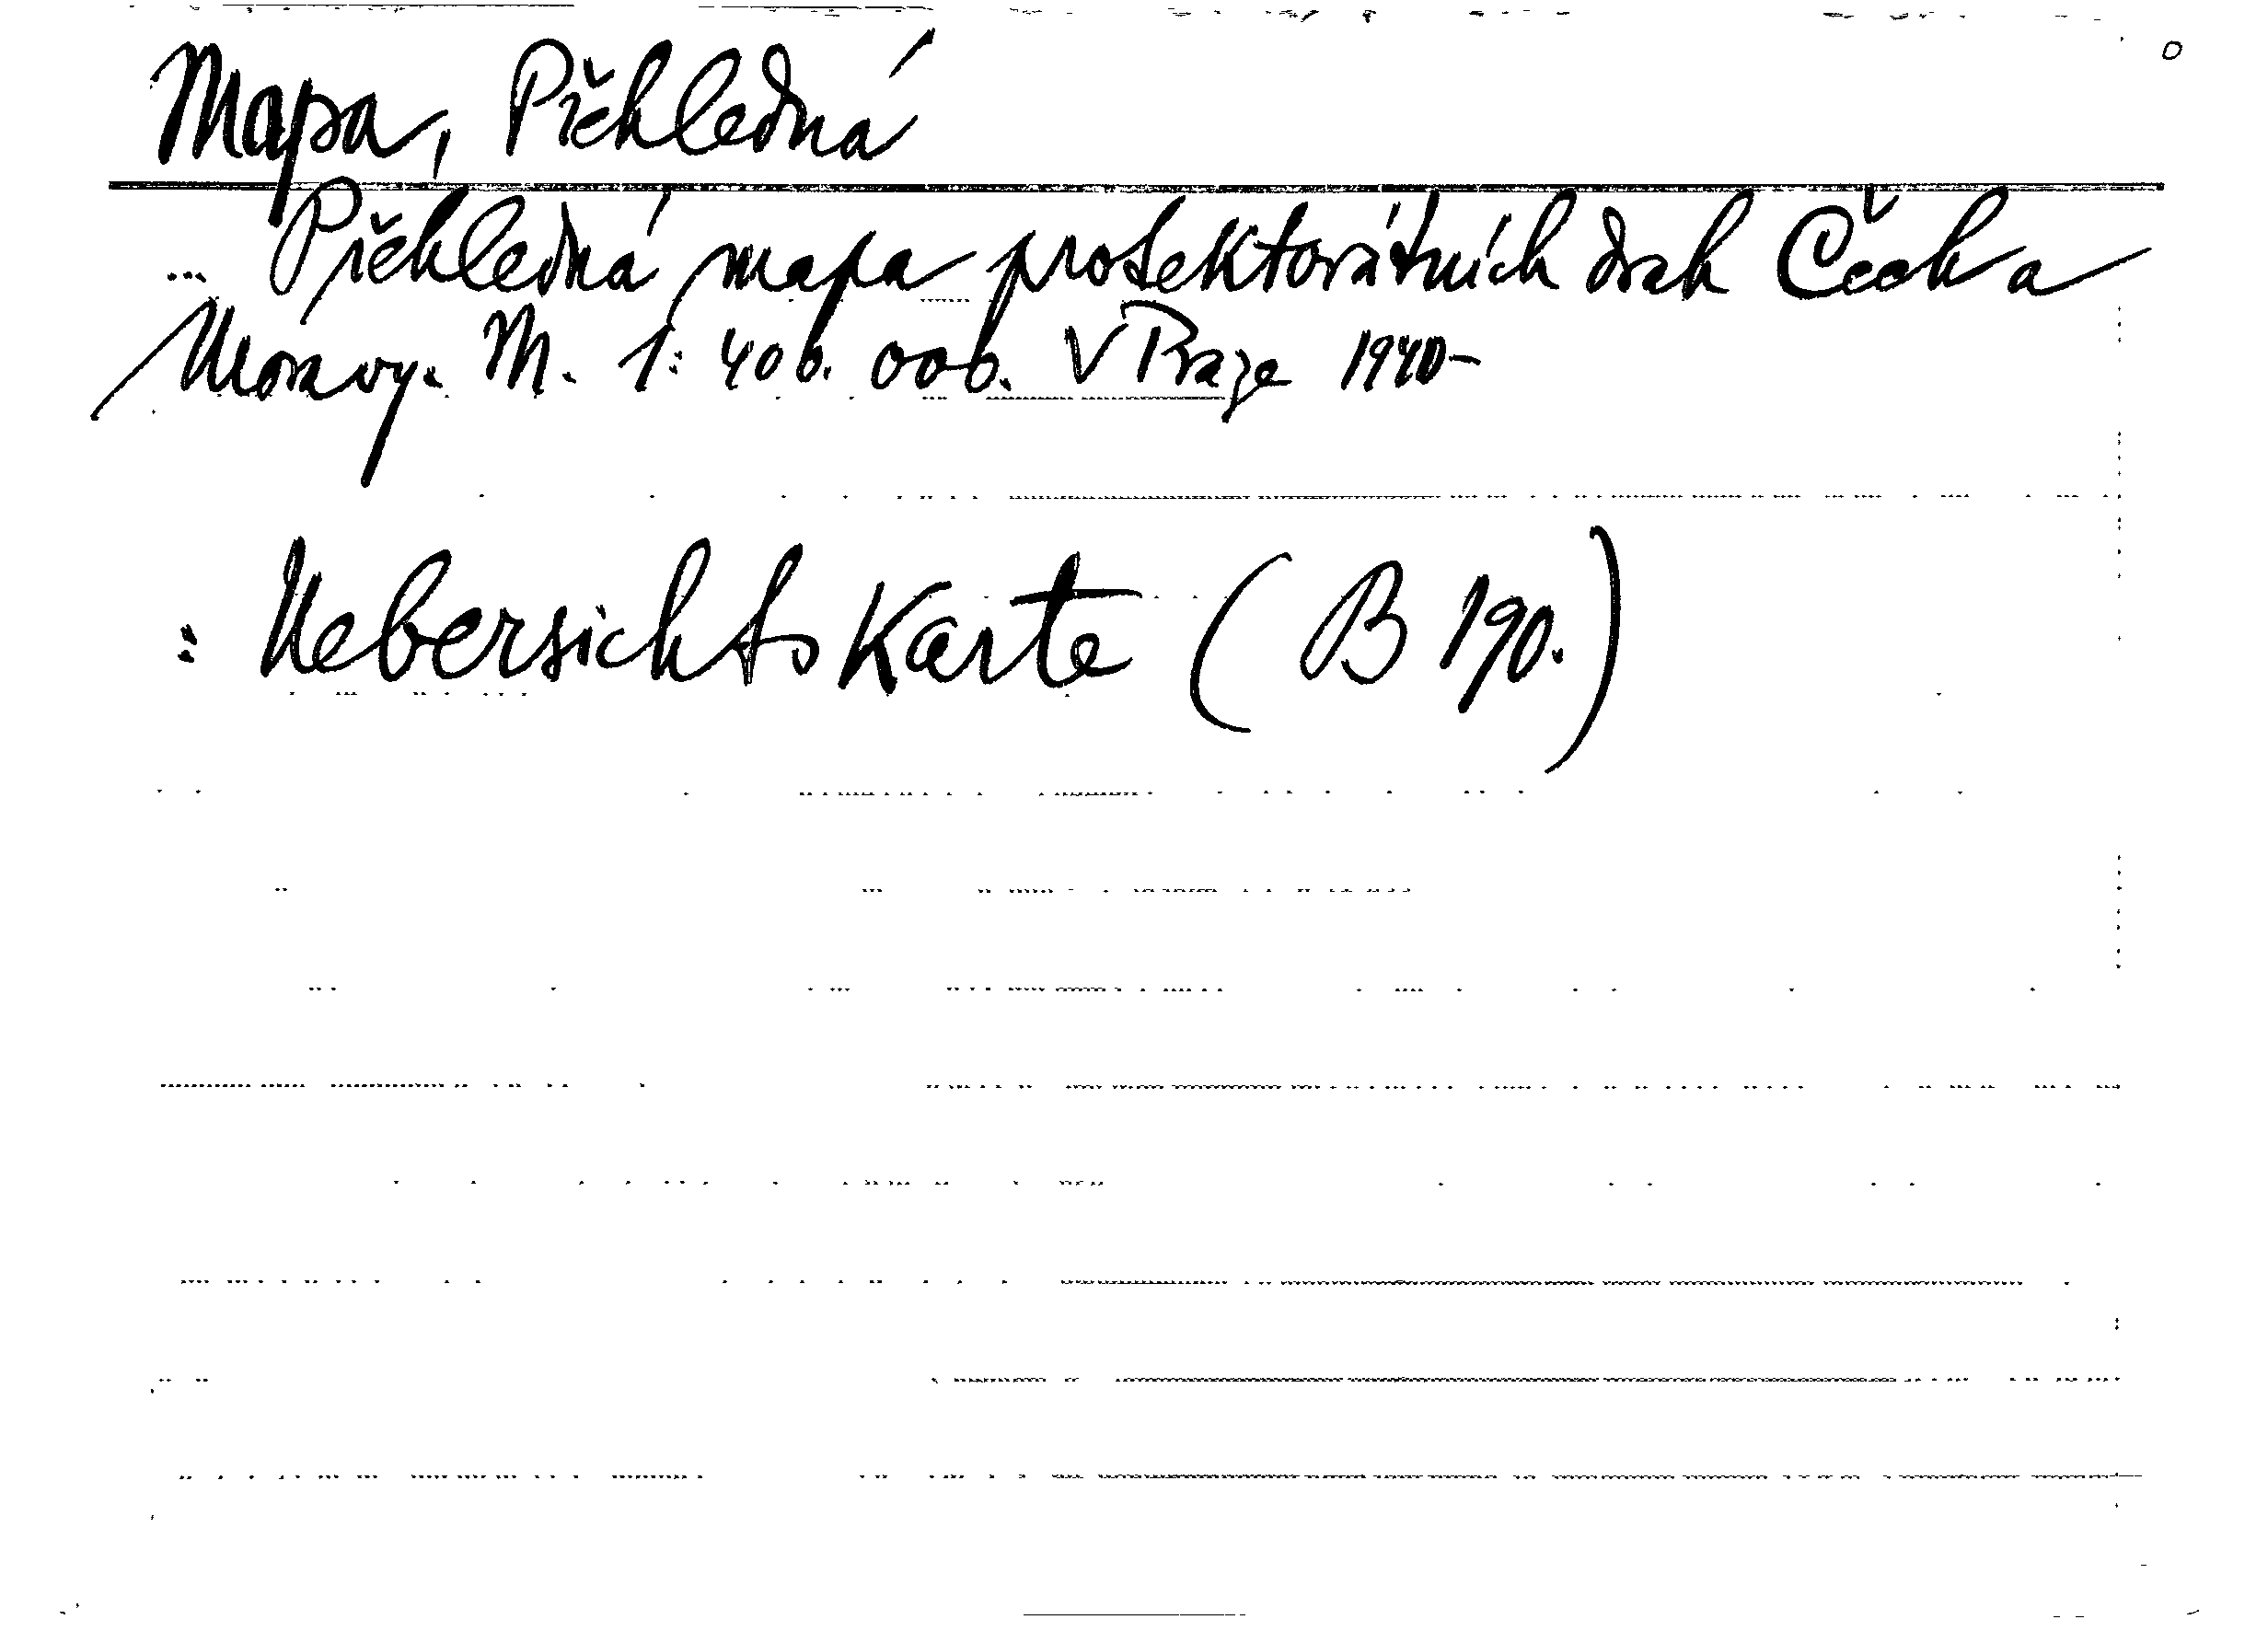 Mapa, Přehledná
... Přehledná mapa protektorátních drah Čech a
Moravy. M. 1: 400.000. V Praze 1940-
: Uebersichtskarte (B 190.)